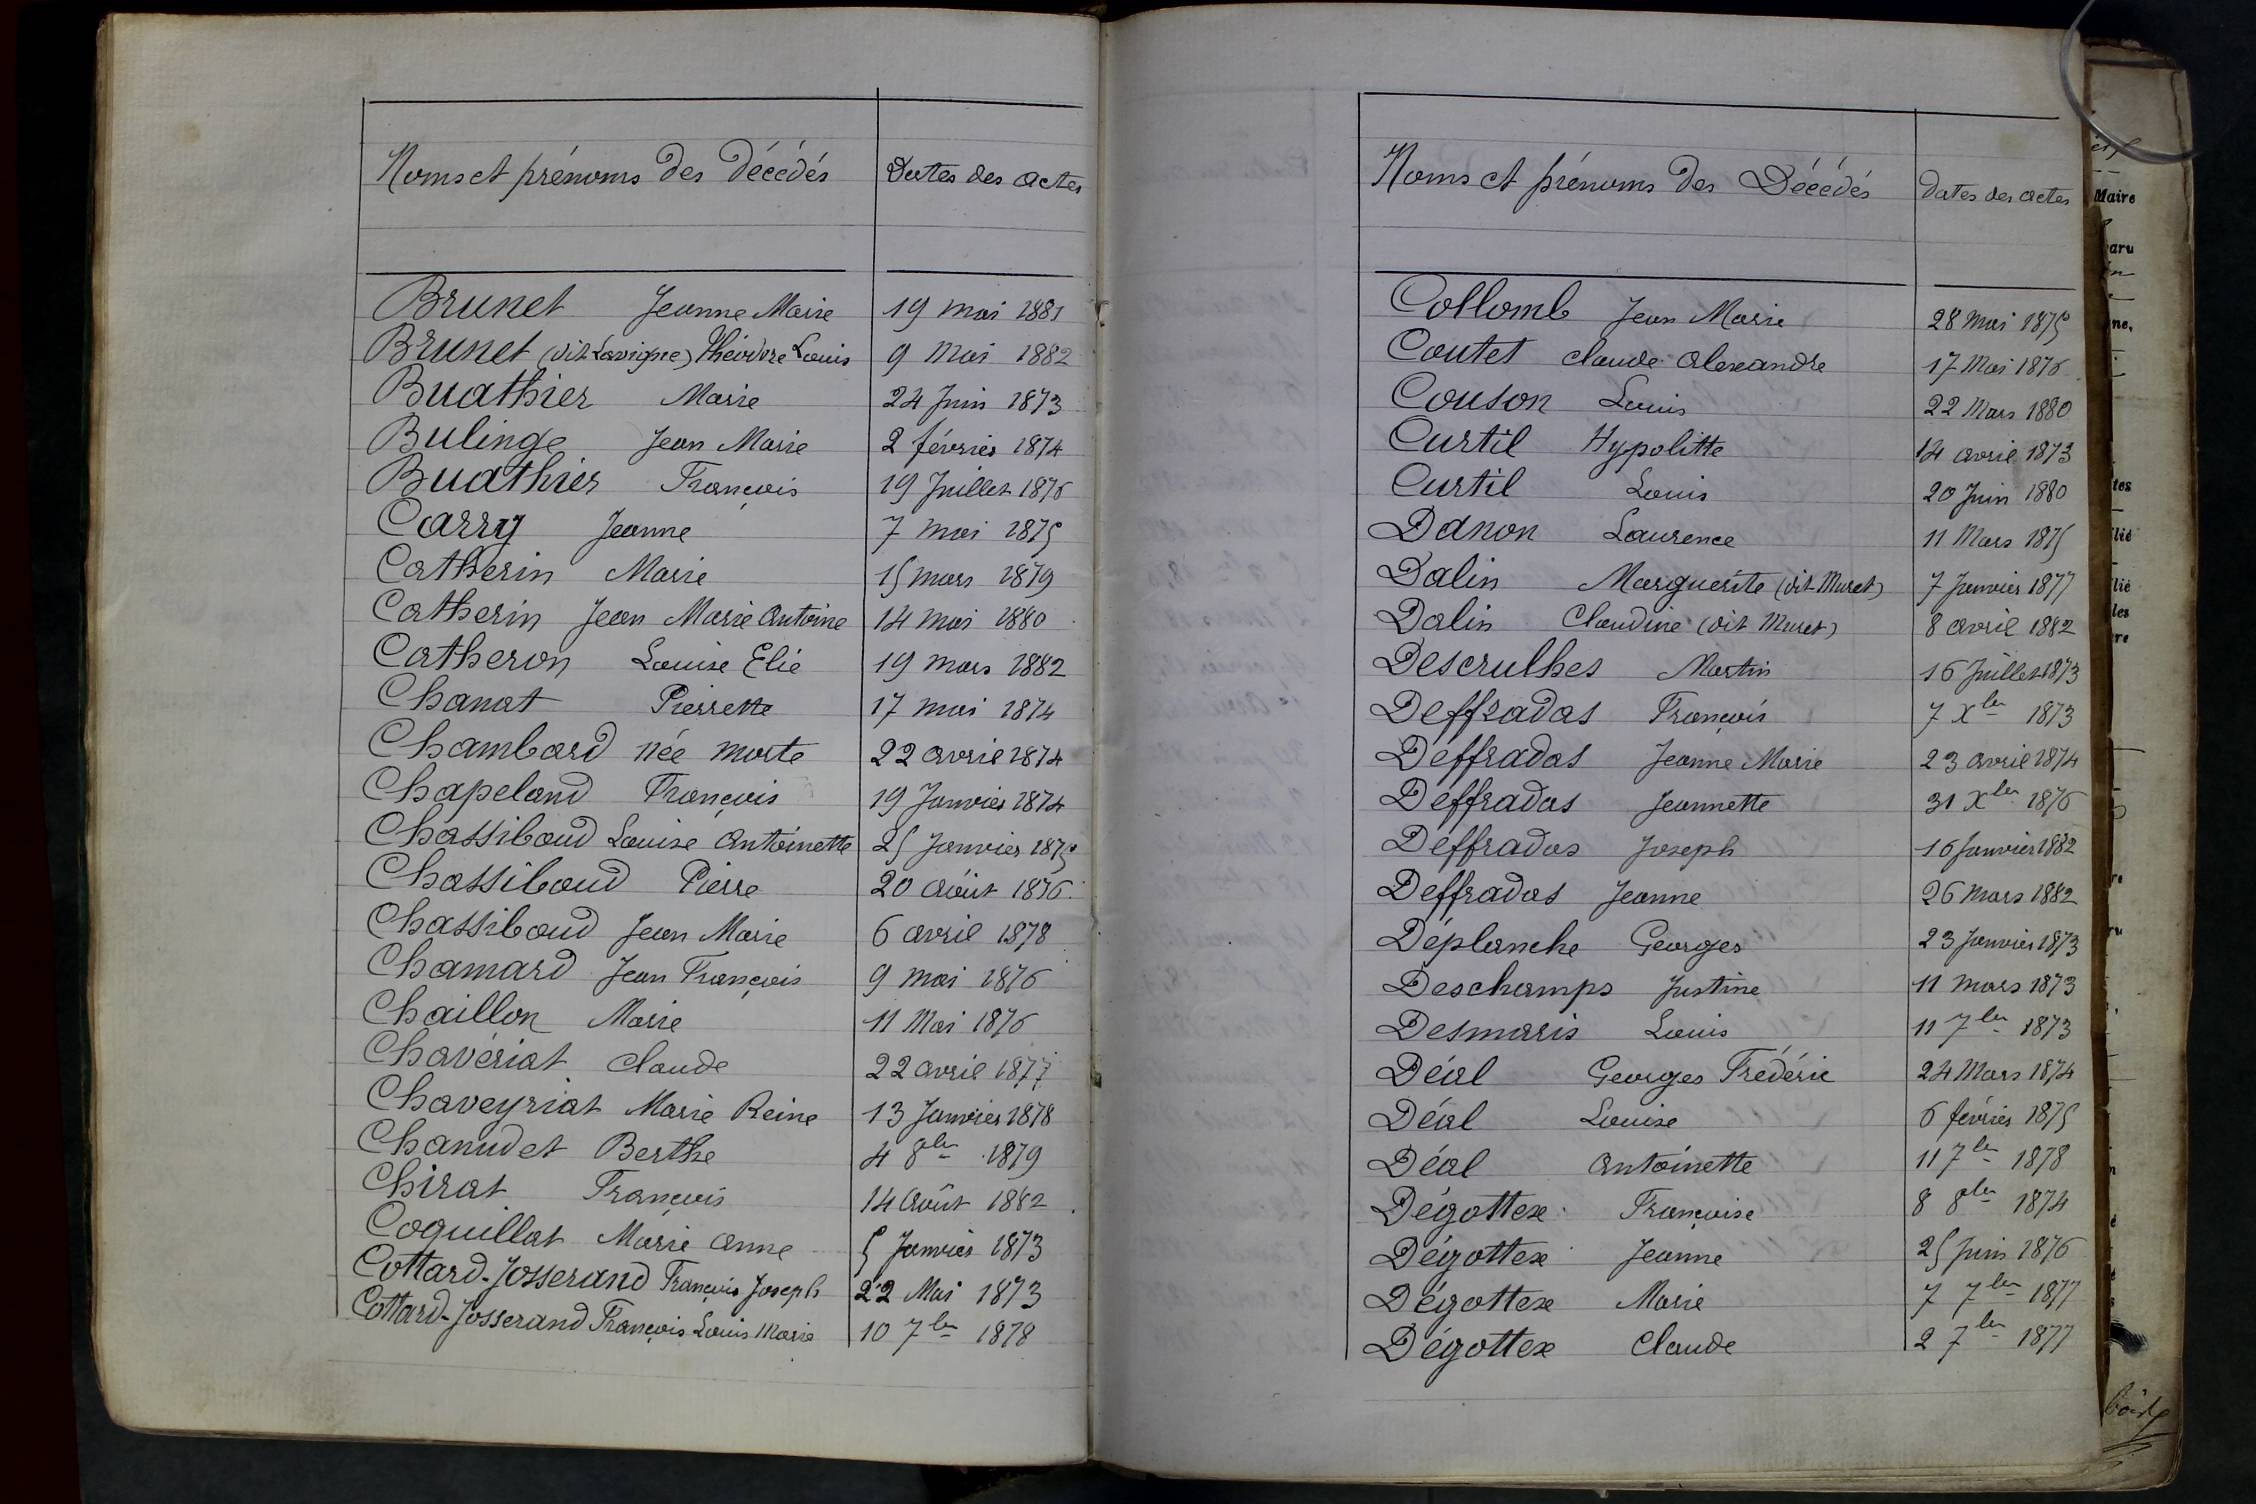 Noms et prénoms des Décédés Dates des actes
Brunet Jeanne Marie 19 mai 1881
Brunet (dit Lavigne) Théodore Louis 9 Mai 1882
Buathier Marie 24 Juin 1873
Bulinge Jean Marie 2 février 1874
Buathier François 19 Juillet 1876
Carry Jeanne 7 mai 1875
Catherin Marie 15 mars 1879
Catherin Jean Marie Antoine 14 mai 1880
Catheron Louise Elie 19 mars 1882
Chanat Pierrette 17 mai 1874
Chambard née morte 22 avril 1874
Chapeland François 19 Janvier 1874
Chassiboud Louise Antoinette 25 Janvier 1875
Chassiboud Pierre 20 Août 1876
Chassiboud Jean Marie 6 avril 1878
Chamard Jean François 9 mai 1876
Chaillon Marie 11 Mai 1876
Chavériat Claude 22 avril 1877
Chaveyriat Marie Reine 13 Janvier 1878
Chanudet Berthe 4 8bre 1879
Chirat François 14 Août 1882
Coquillat Marie Anne 5 Janvier 1873
Cottard-Josserand François Joseph 22 Mai 1873
Cottard-Josserand François Louis Marie 10 7bre 1878
Noms et prénoms des Décédés Dates des actes
Collomb Jean Marie 28 mai 1875
Coutet Claude Alexandre 17 Mai 1876
Couson Louis 22 Mars 1880
Curtil Hypolitte 14 avril 1873
Curtil Louis 20 Juin 1880
Danon Laurence 11 Mars 1875
Dalin Marguerite (dit Muret) 7 Janvier 1877
Dalin Claudine (dit Muret) 8 avril 1882
Descrulhes Martin 16 Juillet 1873
Deffradas François 7 Xbre 1873
Deffradas Jeanne Marie 23 avril 1874
Deffradas Jeannette 31 Xbre 1876
Deffradas Joseph 16 Janvier 1882
Deffradas Jeanne 26 mars 1882
Déplanche Georges 23 Janvier 1873
Deschamps Justine 11 mars 1873
Desmaris Louis 11 7bre 1873
Déal Georges Frédéric 24 Mars 1874
Déal Louise 6 février 1875
Déal Antoinette 11 7bre 1878
Dégottex Françoise 8 8bre 1874
Dégottex Jeanne 25 Juin 1876
Dégottex Marie 7 7bre 1877
Dégottex Claude 2 7bre 1877
Maire